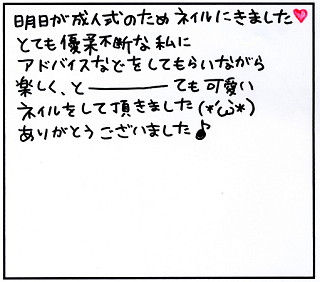 明日が成人式のためネイルにきました♥
とても優柔不断な私に
アドバイスなどをしてもらいながら
楽しく、と―――ても可愛い
ネイルをして頂きました(*'ω'*)
ありがとうございました♪